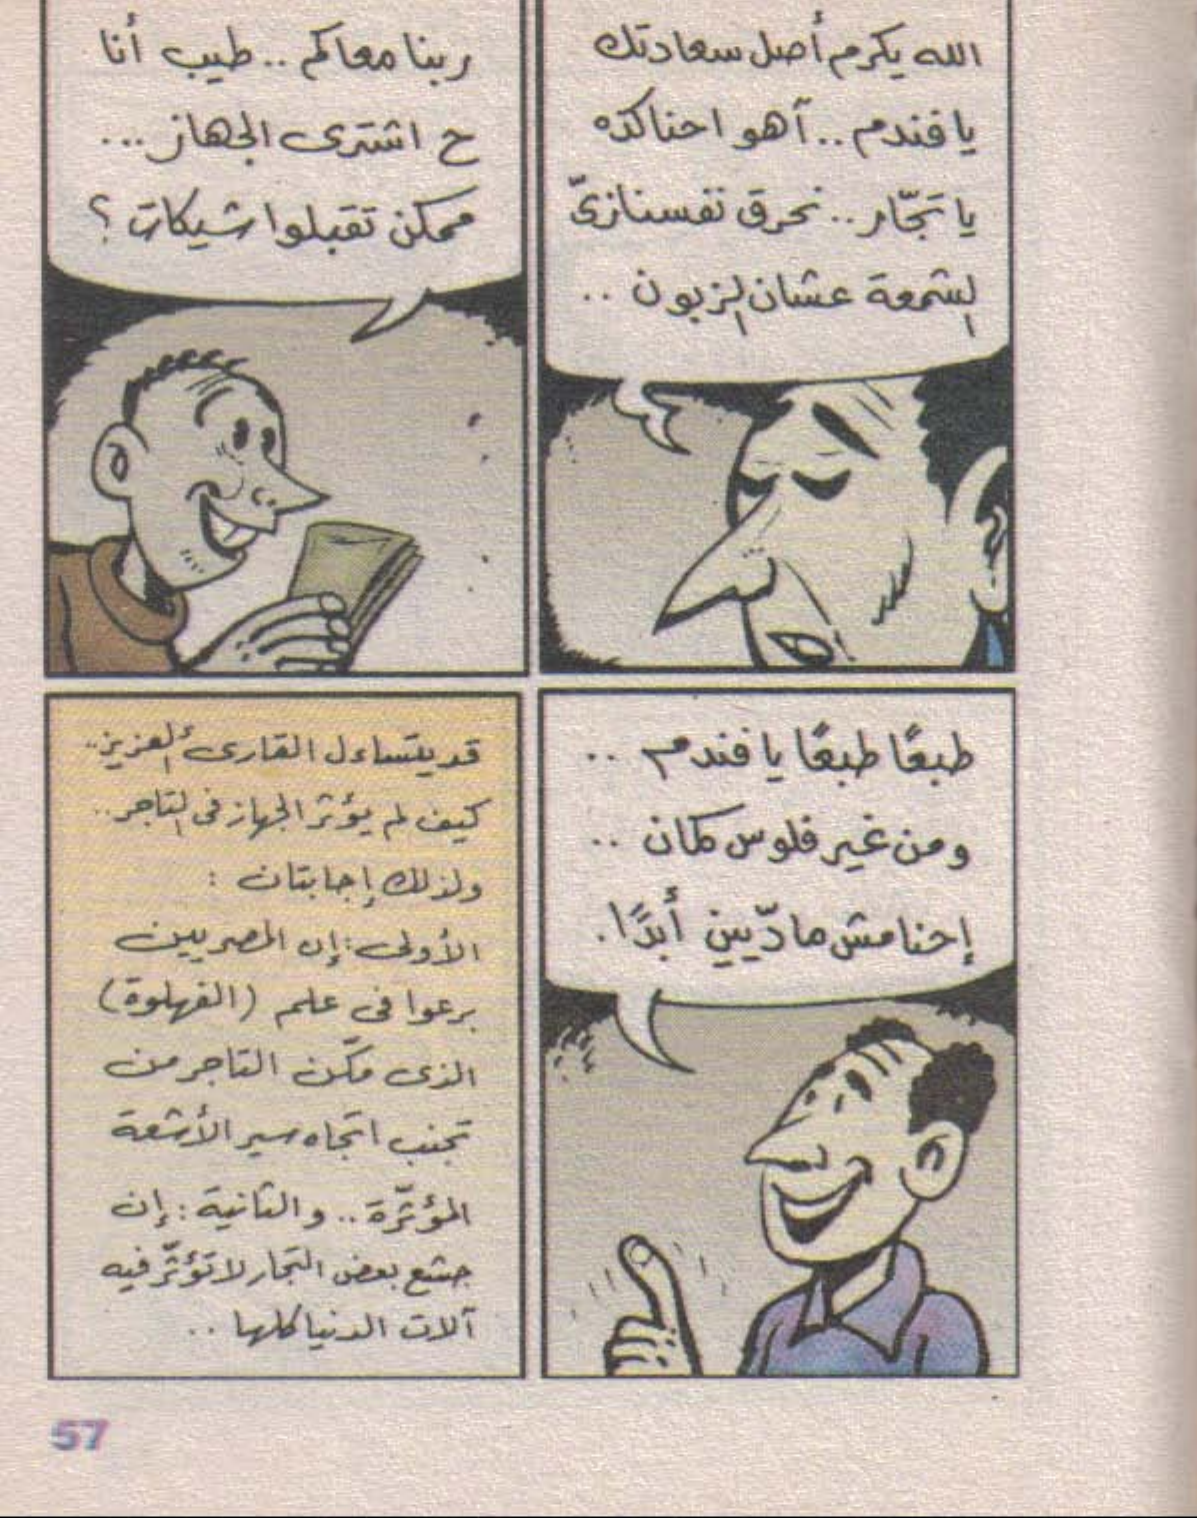 الله يكرم أصل سعادتك
يا فندم .. آهو احنا كده
يا تجّار .. نحرق نفسنا زىّ
الشمعة عشان الزبون ..
ربنا معاكم .. طيب أنا
ح اشترى الجهاز ...
ممكن تقبلوا شيكات ؟
طبعًا طبعًا يا فندم ..
ومن غير فلوس كمان ..
إحنا مش مادّيين أبدًا .
قد يتساءل القارىء العزيز ..
كيف لم يؤثر الجهاز فى التاجر ..
ولذلك إجابتان :
الأولى : إن المصريين
برعوا فى علم (الفهلوة)
الذى مكّن التاجر من
تجنب اتجاه سير الأشعة
المؤثّرة .. والثانية : إن
جشع بعض التجار لا تؤثّر فيه
آلات الدنيا كلها ..
57